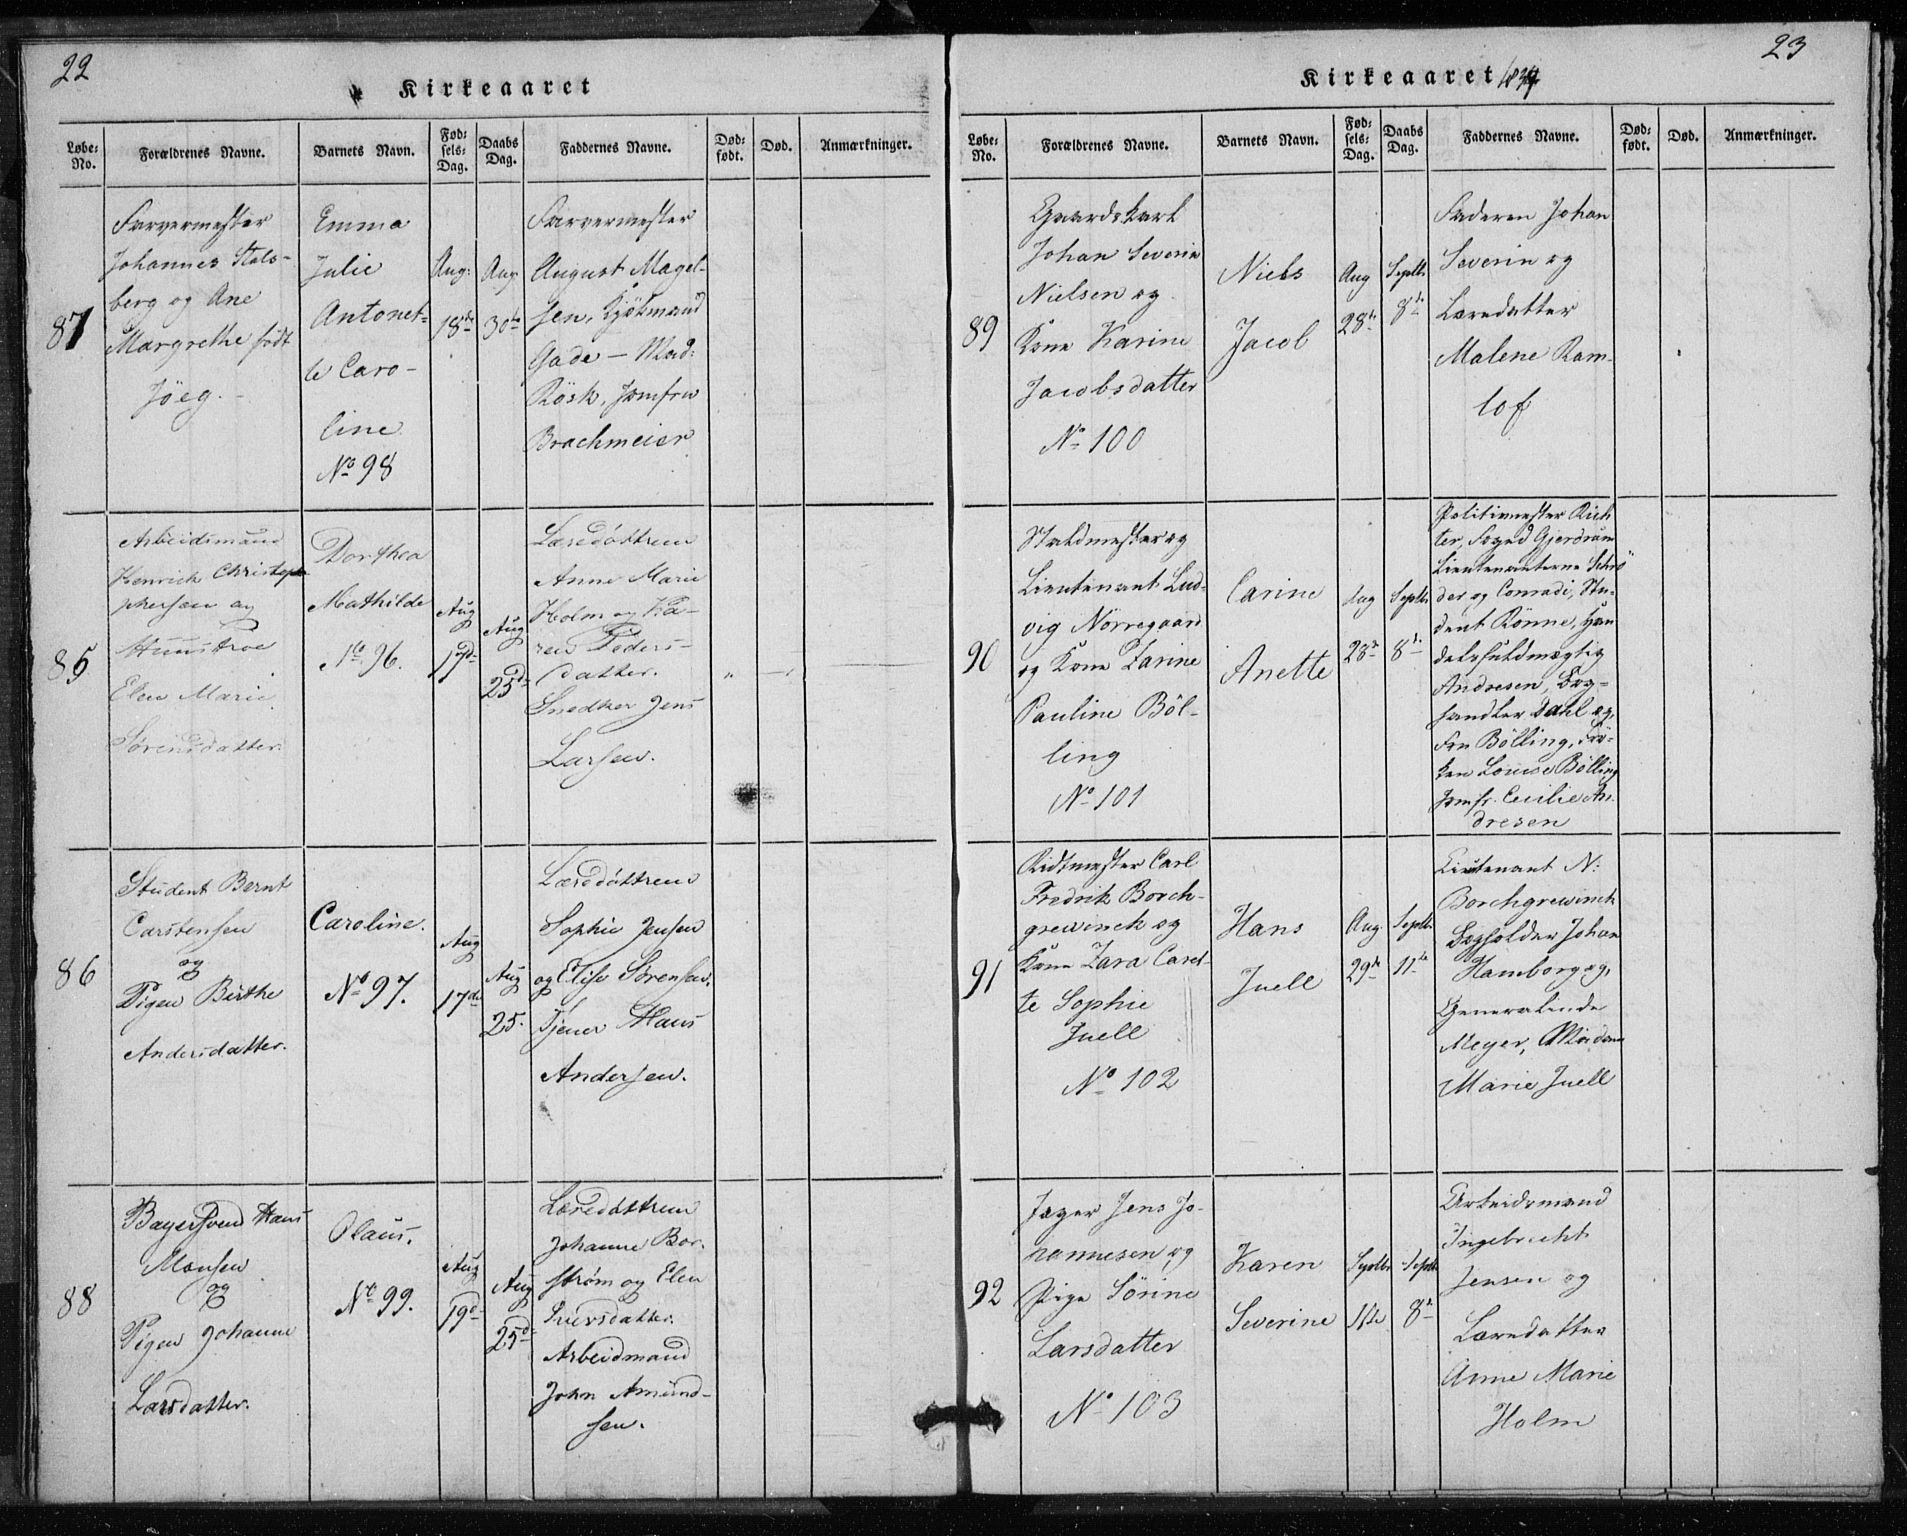 22
Kirkeaaret
Løbe-No. Forældrenes Navne. Barnets Navn. Fødsels-Dag. Daabs Dag. Faddernes Navne. Dødfødt. Død. Anmærkninger.
87
Farvermester
Johannes Stals-
berg og Ane
Margrethe født
Jöeg.
Emma
Julie
Antonet-
te Caro-
line
No 98
Aug:
18de
Aug
30te
Farvermester
August Magel-
sen, Kjøbmand
Gade — Mad:
Rösk, Jomfru
Brachmeier
85
Arbeidsmand
Henrich Christop-
phersen og
Huustroe
Elen Marie
Sørensdatter.
Dorthea
Mathilde
No 96.
Aug
17d
Aug
25d
Læredöttrene
Anne Marie
Holm og Ka-
ren Peders-
datter.
Snedker Jens
Larsen.
86
Student Bernt
Carstensen
og
Pigen Birthe
Andersdatter.
Caroline.
No 97.
Aug
17de
Aug
25.
Læredöttrene
Sophie Jensen
og Elise Sørensen.
Tjener Hans
Andersen.
88
Bagersvend Hans
Monsen
og
Pigen Johanne
Larsdatter.
Olaus.
No 99.
Aug
19d
Aug
25d
Læredöttrene
Johanne Bor-
strøm og Elen
Iversdatter.
Arbeidmand
John Amund-
sen.
23
Kirkeaaret 1839
Løbe-No. Forældrenes Navne. Barnets Navn. Fødsels-Dag. Daabs Dag. Faddernes Navne. Dødfødt. Død. Anmærkninger.
89
Gaardskarl
Johan Severin
Nielsen og
Kone Karine
Jacobsdatter
No 100
Niels
Jacob
Aug
28de
Septbr
8de
Faderen Johan
Severin og
Læredatter
Malene Ram-
lof
90
Staldmester og
Lieutenant Lud-
vig Nörregaard
og Kone Zarine
Pauline Böl-
ling
No 101
Carine
Anette
Aug
28de
Septbr
8de
Politiemester Rich
ter, Foged Gjerdrum
Lieutenanterne Schrö
der og Conradi, Stu-
dent Rönne, Han
delsfuldmægtig
Andresen, Bog-
handler Dahl og,
Fru Bölling, Frö-
ken Louise Bölling
Jomfr. Cecilie An-
dresen
91
Ridtmester Carl
Fredrik Borch-
grewinck og
Kone Zara Carel-
te Sophie
Juell
No 102
Hans
Juell
Aug.
29de
Septbr
11te
Lieutenant N:
Borchgrewinck
Bogholder Johan
Hamborg og,
Generalinde
Meyer, Madam
Marie Juell
92
Jæger Jens Jo-
hannesen og
Pige Sörine
Larsdatter
No 103
Karen
Severine
Septbr
1ste
Septbr
8de
Arbeidsmand
Ingebrecht
Jensen og
Læredatter
Anne Marie
Holm